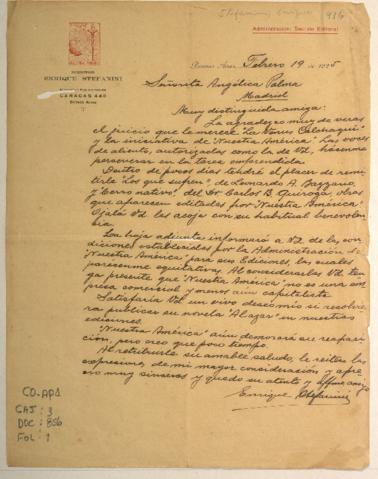 Stefanini, Enrique
936
Administración: Sección Editorial
DIRECTOR
ENRIQUE STEFANINI
CARACAS 440
Buenos Aires
Buenos Aires, Febrero 19 de 1925
Señorita Angélica Palma
Madrid
Muy distinguida amiga:
La agradezco muy de veras
el juicio que la merece "La Venus Calchaquí"
y la iniciativa de "Nuestra América". Las voces
de aliento, autorizadas como la de Vd, hácenme
perseverar en la tarea emprendida.
Dentro de pocos días tendré el placer de remi-
tirle "Los que sufren", de Leonardo A. Bazzano,
y "Cerro nativo", del Sr Carlos B. Quiroga, obras
que aparecen editadas por "Nuestra América".
Ojalá Vd las acoja con su habitual benevolen-
cia.
La hoja adjunta informará a Vd de las con-
diciones establecidas por la Administración de
"Nuestra América" para sus Ediciones, las cuales
parécenme equitativas. Al considerarlas Vd. ten-
ga presente que "Nuestra América" no es una em-
presa comercial y menos aun capitalista.
Satisfaría Vd un vivo deseo mío si resolvie-
ra publicar su novela "Al azar" en nuestras
ediciones.
"Nuestra América" aún demorará su reapari-
ción, pero creo que poco tiempo.
Al retribuirle su amable saludo, le reitero las
expresiones de mi mayor consideración y apre-
cio muy sinceros y quedo su atento y affmo amigo
Enrique Stefanini
CO-AP1
CAJ: 3
DOC: 856
FOL: 1